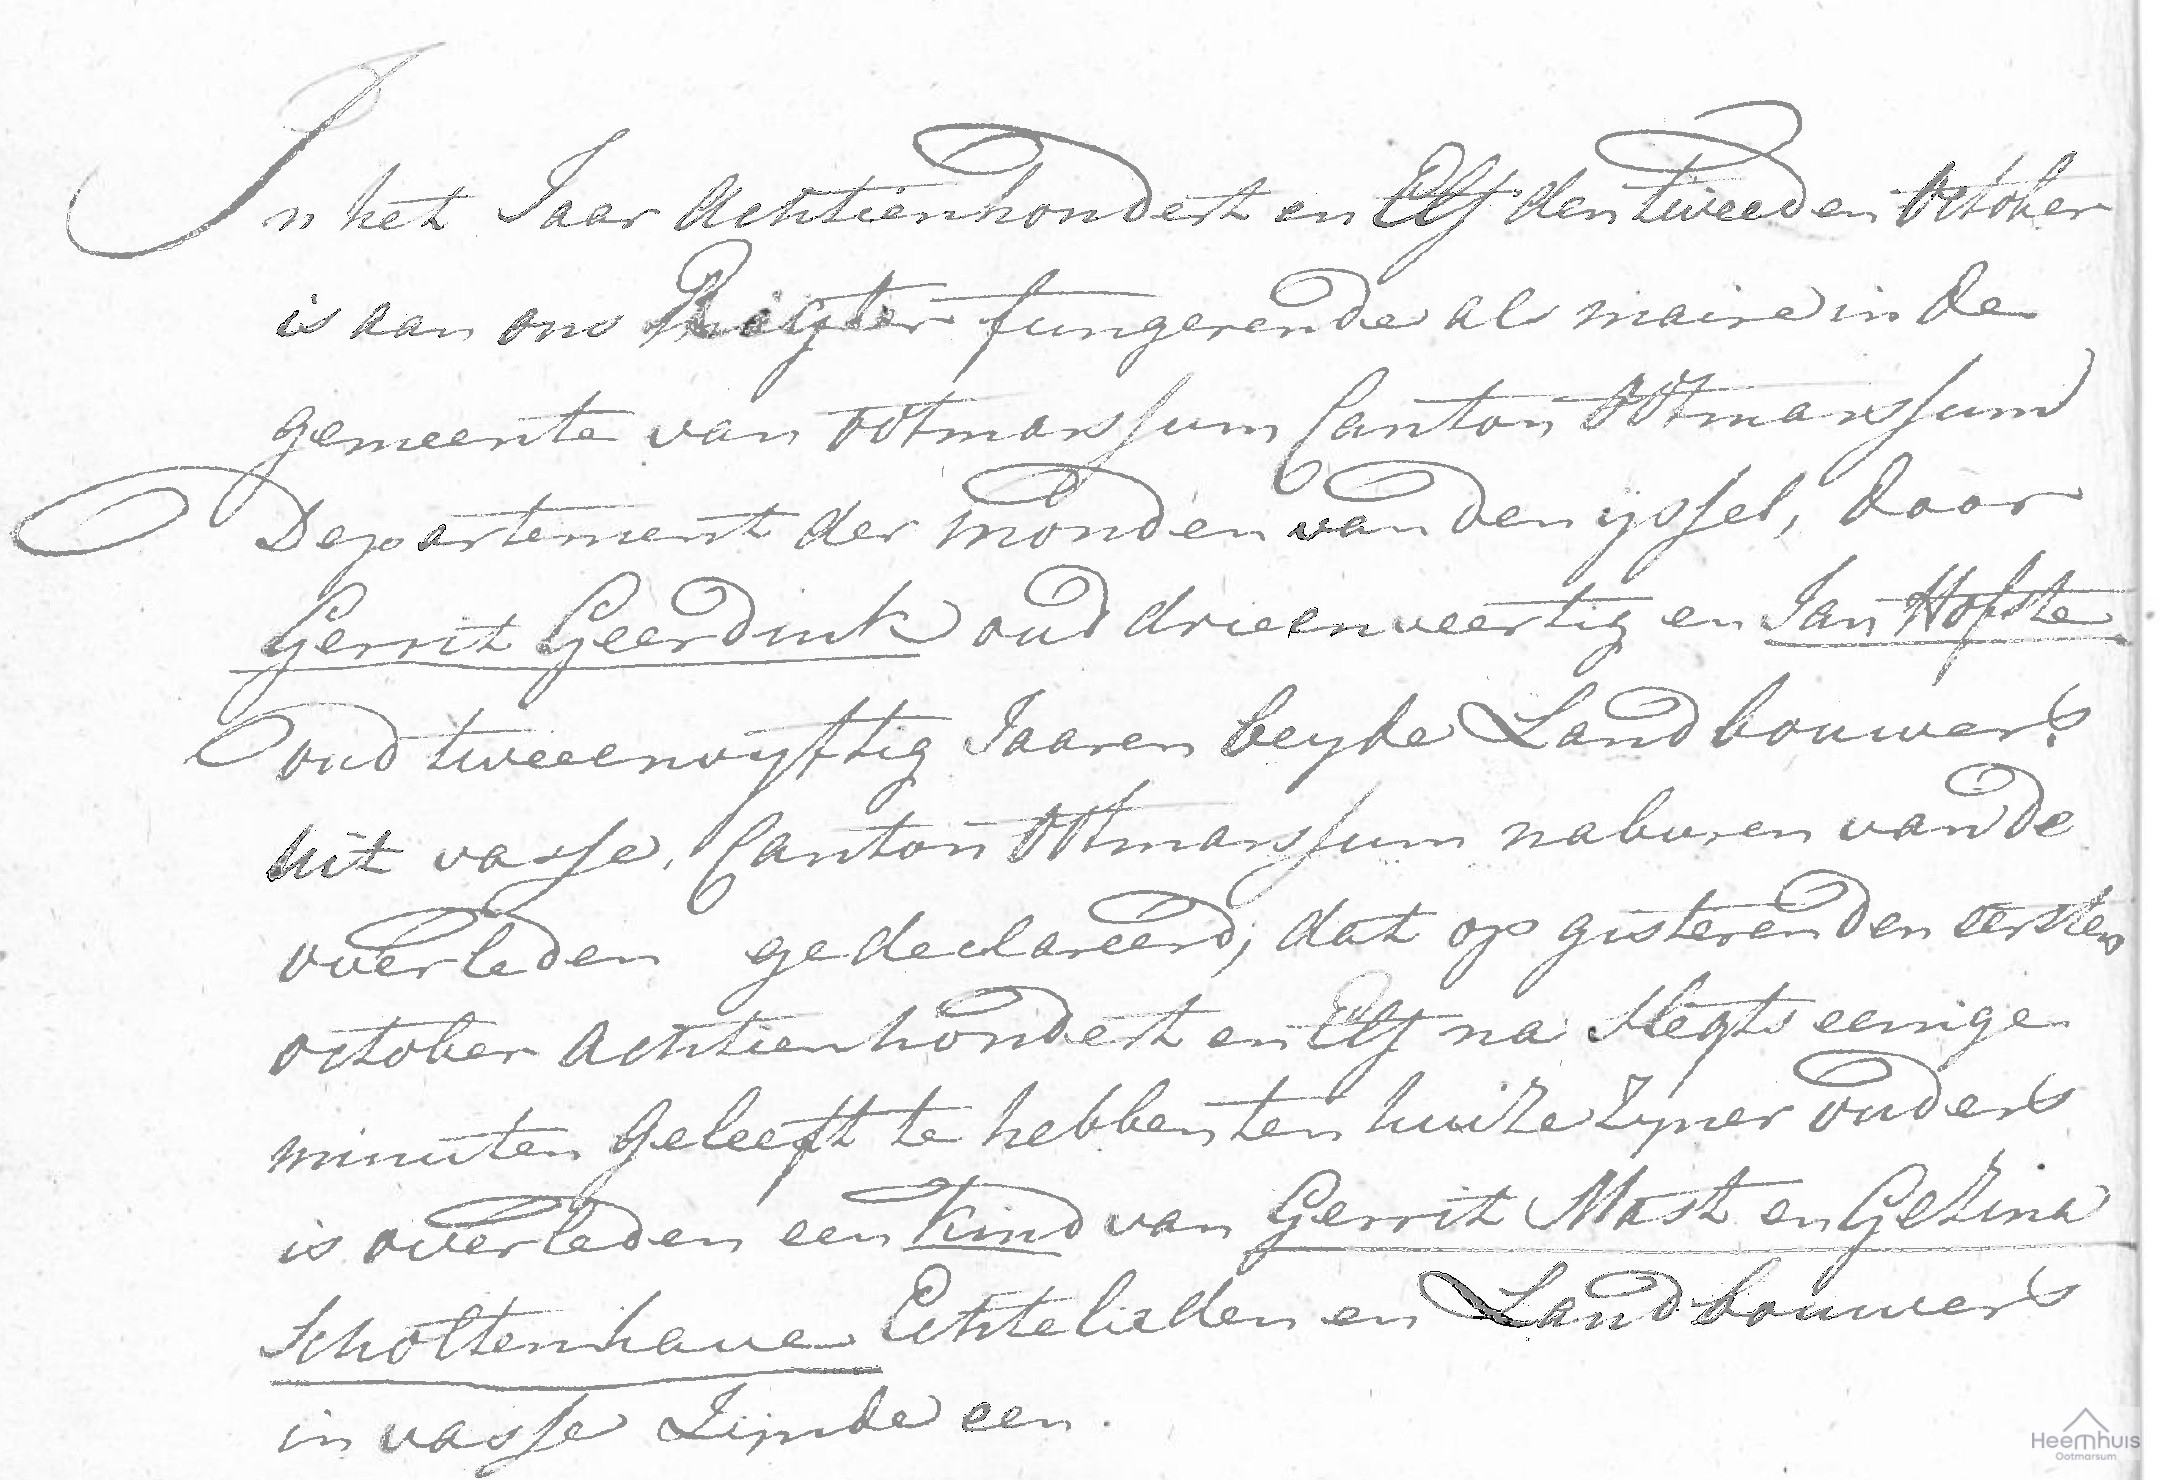 In het Jaar Achttienhondert en Elf den tweeden October
is aan ons Rigter fungerende als maire in de
gemeente van Ootmarssum Canton Ootmarssum
Departement der monden van den yssel, door
Gerrit Geerdink oud drieenveertig en Jan Hofste
oud tweeenvyftig Jaaren beyde Landbouwers
uit vasse, Canton Ootmarssum naburen van de
overleden gedeclareerd, dat op gisteren den eersten
october Achttienhondert en Elf na slegts eenige
minuten geleeft te hebben ten huize zyner ouders
is overleden een kind van Gerrit Mast en Gezina
Scholtenhave Echtelieden en Landbouwers
in vasse Zijnde een.
Heemhuis
Ootmarsum